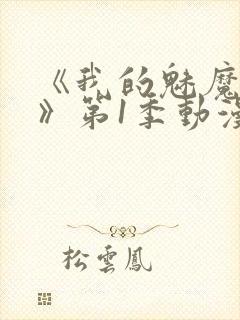 《我的魅魔
》第1季動漫
松雲鳳